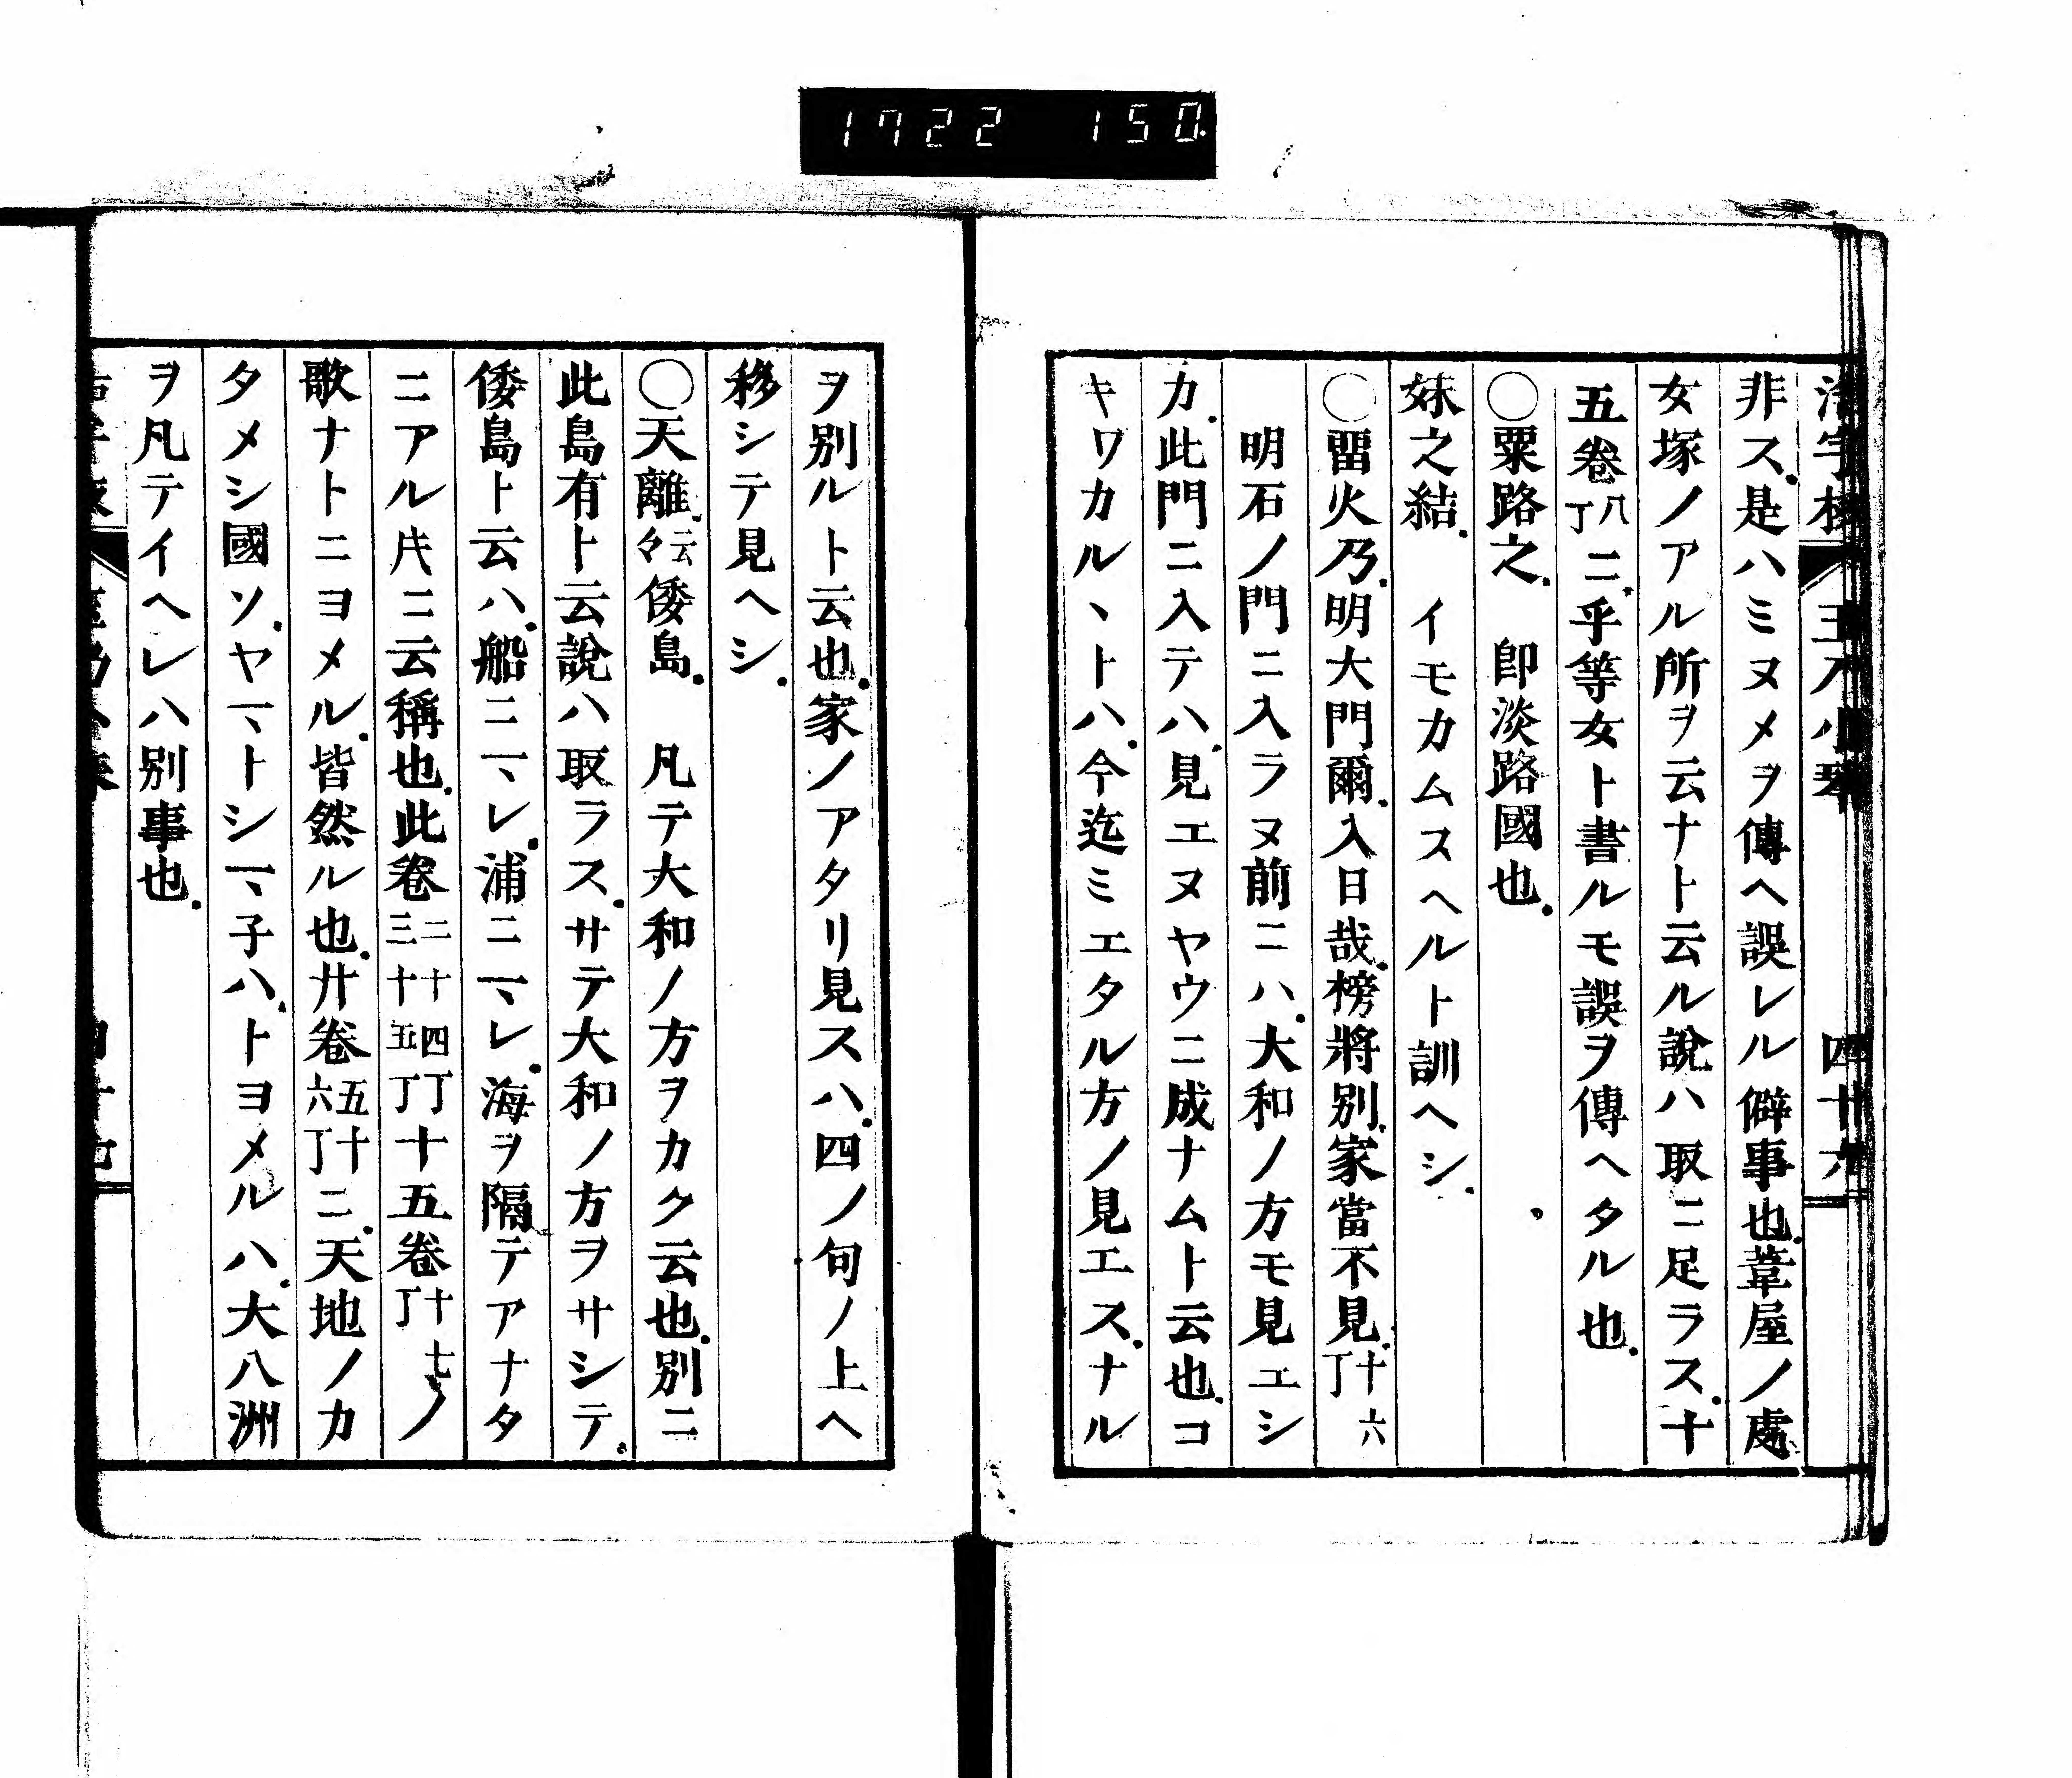 1722 150
非ス.是ハミヌメヲ傳ヘ誤レル僻事也.葦屋ノ處
女塚ノアル所ヲ云ナト云ル說ハ取ニ足ラス.十
五卷八丁ニ.乎等女ト書ルモ誤ヲ傳ヘタル也.
○粟路之.　卽淡路國也.
妹之結.　イモカムスヘルト訓ヘシ.
○畱火乃.明大門爾.入日哉.榜將別.家當不見.十六丁
明石ノ門ニ入ラヌ前ニハ.大和ノ方モ見エシ
カ.此門ニ入テハ.見エヌヤウニ成ナムト云也.コ
キワカルヽトハ.今迄ミエタル方ノ見エス.ナル
ヲ別ルト云也.家ノアタリ見スハ.四ノ句ノ上ヘ
移シテ見ヘシ.
○天離.云々倭島.　凡テ大和ノ方ヲカク云也.別ニ
此島有ト云說ハ取ラス.サテ大和ノ方ヲサシテ.
倭島ト云ハ.船ニマレ.浦ニマレ.海ヲ隔テアナタ
ニアル𪜈ニ云稱也.此卷二十四丁三十五丁十五卷十七丁ノ
歌ナトニヨメル.皆然ル也.廿卷五十六丁ニ.天地ノカ
タメシ國ソ.ヤマトシマ子ハ.トヨメルハ.大八洲
ヲ凡テイヘレハ別事也.